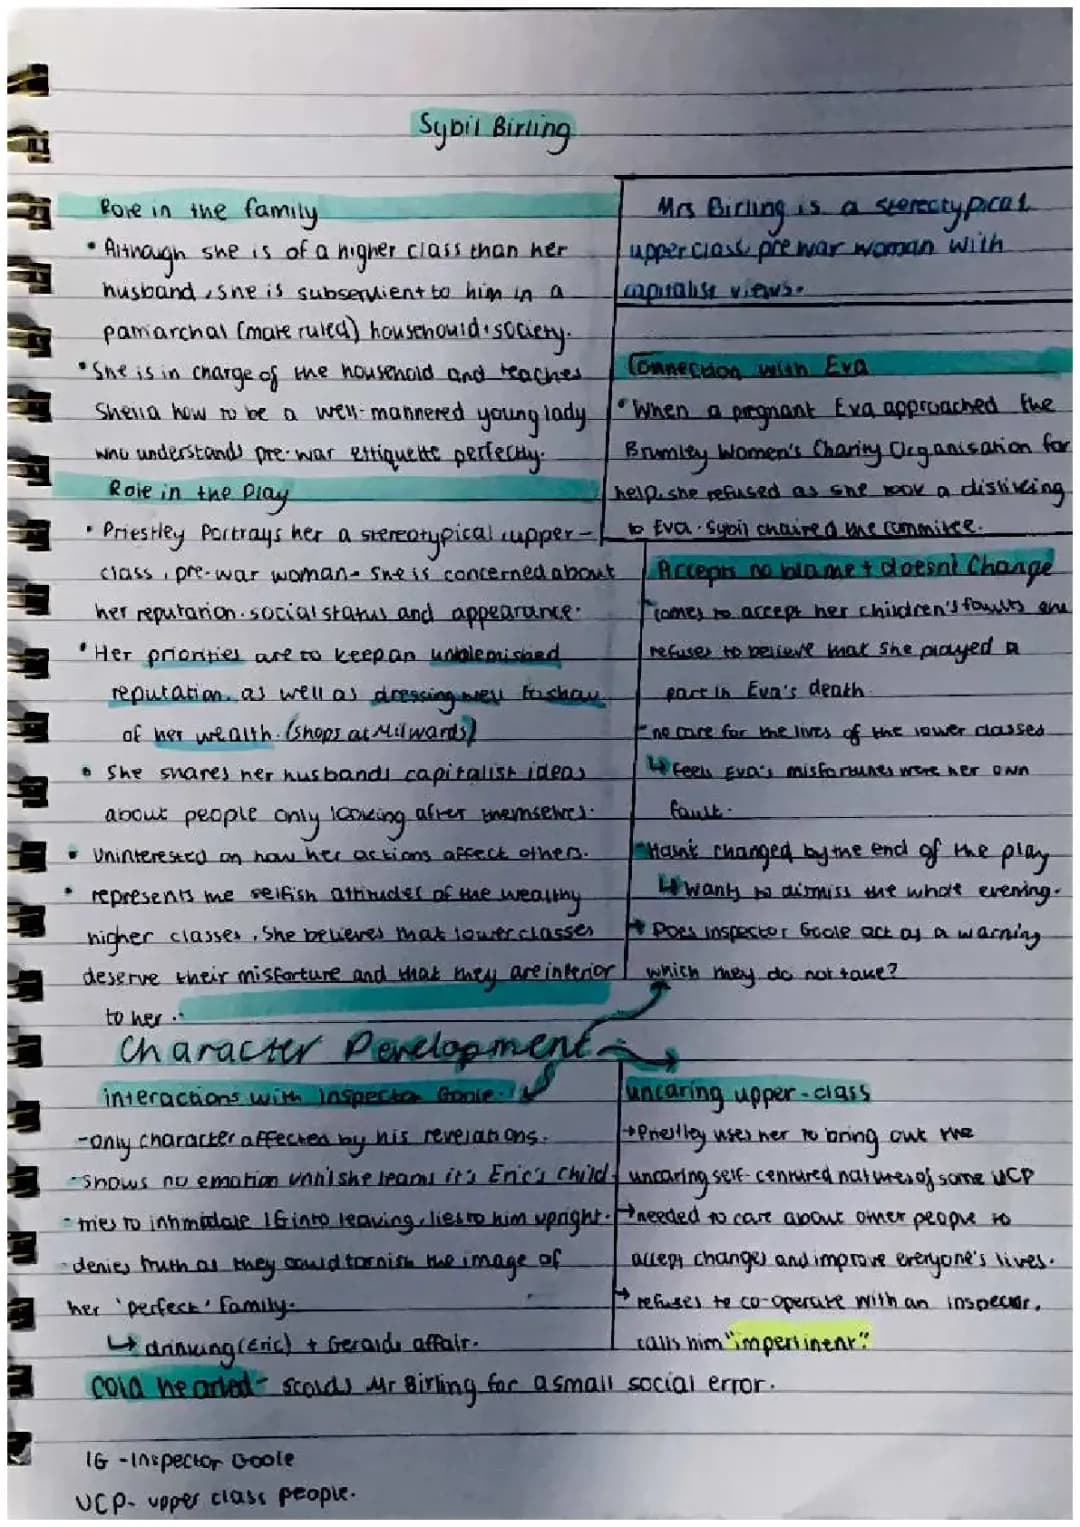 Sybil Birling
Role in the family
• Although she is of a higher class than her
husband, she is subservient to him in a
patriarchal (male ruled) household + society.
• She is in charge of the household and teaches
Sheila how to be a well-mannered young lady
who understands pre-war ettiquette perfectly.
Role in the Play
• Priestley Portrays her a stereotypical, upper-
class, pre-war woman - she is concerned about
her reputation, social status and appearance.
• Her priorities are to keep an unblemished
reputation, as well as dressing well to show
of her wealth. (shops at Milwards)
• She shares her husbands capitalist ideas
about people only looking after themselves.
• Uninterested on how her actions affect others.
• represents the selfish attitudes of the wealthy
higher classes. She believes that lower classes
deserve their misfortune and that they are inferior
to her.
Mrs Birling is a stereotypical
upper class, pre war woman with
capitalist views.
Connection with Eva
• When a pregnant Eva approached the
Brumley Women's Charity Organisation for
help, she refused as she took a disliking
to Eva. Sybil chaired the commitee.
Accepts no blame + doesn't Change
comes to accept her children's faults and
refuses to believe that she played a
part in Eva's death.
- no care for the lives of the lower classes
↳ feels Eva's misfortunes were her own
fault.
Hasn't changed by the end of the play
↳ wants to dismiss the whole evening.
Does Inspector Goole act as a warning
which they do not take?
Character Development
interactions with Inspector Goole.
- only character affected by his revelations.
- shows no emotion until she learns it's Eric's Child
- tries to intimidate IG into leaving, lies to him upright.
- denies truth as they could tarnish the image of
her 'perfect' family.
↳ drinking (Eric) + Geralds affair.
cold hearted - scolds Mr Birling for a small social error.
uncaring upper-class
→ Priestley uses her to bring out the
uncaring self-centured natures of some UCP
→ needed to care about other people to
accept changes and improve everyone's lives.
→ refuses to co-operate with an inspector,
calls him "impertinent".
IG - Inspector Goole
UCP - upper class people.